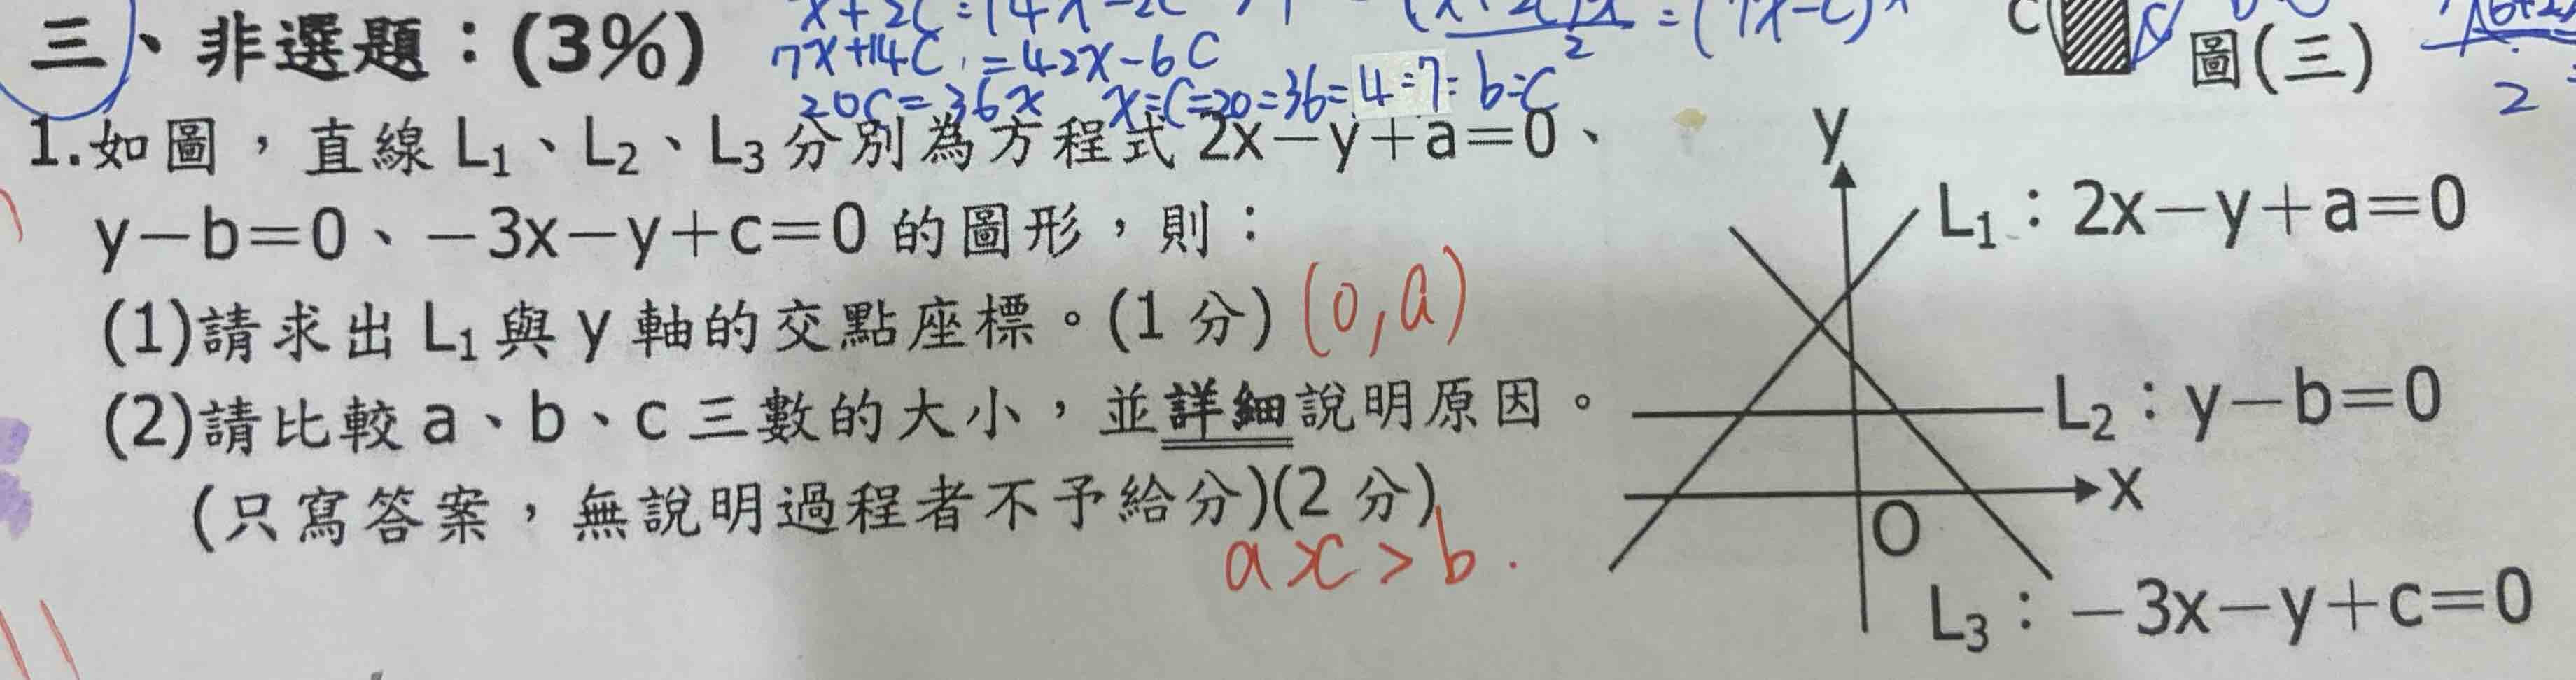 x+2C=14x-2C
7x+14C=42x-6C
20C=36x x:C=20:36=4:7=b:C
2
三、非選題：(3%)
C
圖(三)
2
1.如圖，直線 L₁、L₂、L₃ 分別為方程式 2x－y＋a＝0、
y－b＝0、－3x－y＋c＝0 的圖形，則：
(1)請求出 L₁ 與 y 軸的交點座標。(1 分) (0,a)
(2)請比較 a、b、c 三數的大小，並詳細說明原因。
(只寫答案，無說明過程者不予給分)(2 分)
a>c>b.
y
L₁：2x－y＋a＝0
L₂：y－b＝0
x
O
L₃：－3x－y＋c＝0